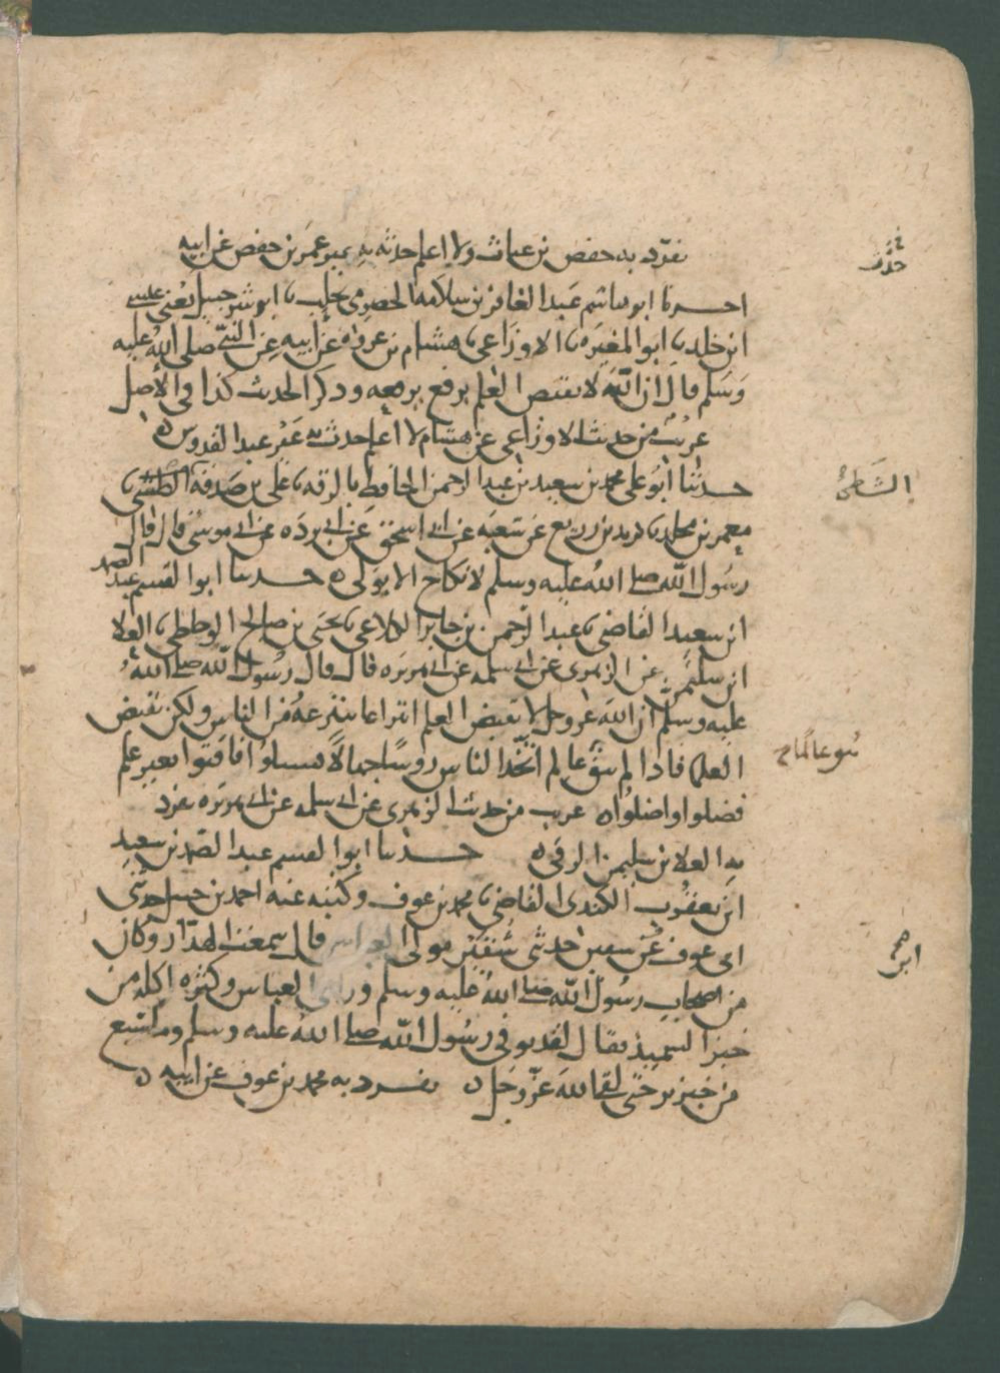 تفرد به حفص بن غياث ولا اعلم حدثه به غير عمر بن حفص عن ابيه
اخبرنا ابو هاشم عبد الغافر بن سلامه الحضرمي بحلب نا ابو شرحبيل يعني عيسى
ابن خلد نا ابو المغيره نا الاوزاعي نا هشام بن عروة عن ابيه عن النبي صلى الله عليه
وسلم قال ان الله لا يقبض العلم برفع يرفعه وذكر الحديث كذا في الاصل
غريب من حديث الاوزاعي عن هشام لا اعلم حدث به غير عبد القدوس ه
حدثنا ابو علي محمد بن سعيد بن عبد الرحمن الحافظ بالرقه نا علي بن صدقه الشطي نا
معمر بن مخلد نا يزيد بن زريع عن شعبه عن ابي اسحق عن ابي برده عن ابي موسى قال قال
رسول الله صلى الله عليه وسلم لا نكاح الا بولي ه حدثنا ابو القسم عبد الصمد
ابن سعيد القاضي نا عبد الرحمن بن جابر الكلاعي نا يحيى بن صالح الوحاظي نا العلا
ابن سليمن عن الزهري عن ابي سلمه عن ابي هريره قال قال رسول الله صلى الله
عليه وسلم ان الله عز وجل لا يقبض العلم انتزاعا ينتزعه من الناس ولكن يقبض
العلما فاذا لم يبق عالم اتخذ الناس روسا جهالا فسيلوا فافتوا بغير علم
فضلوا واضلوا ه غريب من حديث الزهري عن ابي سلمه عن ابي هريره تفرد
به العلا بن سليمن الرقي ه حدثنا ابو القسم عبد الصمد بن سعيد
ابن يعقوب الكندي القاضي نا محمد بن عوف وكتبه عنه احمد بن حنبل حدثني
ابي عوف عن شقير مولى العباس قال سمعت الهدار وكان
من اصحاب رسول الله صلى الله عليه وسلم وراى العباس وكثره اكله من
خبز السميذ فقال لقد توفي رسول الله صلى الله عليه وسلم وما شبع
من خبز بر حتى لقي الله عز وجل ه تفرد به محمد بن عوف عن ابيه ه
الشطي
يبق عالما